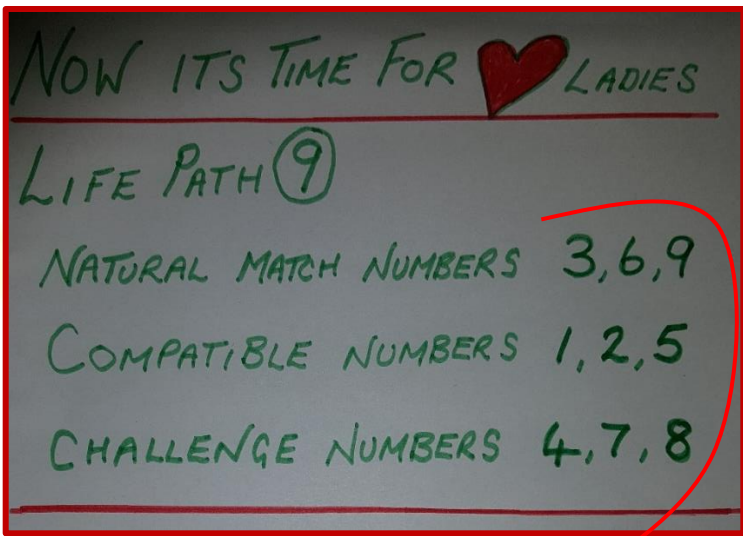 NOW ITS TIME FOR LADIES
LIFE PATH 9
NATURAL MATCH NUMBERS 3,6,9
COMPATIBLE NUMBERS 1,2,5
CHALLENGE NUMBERS 4,7,8